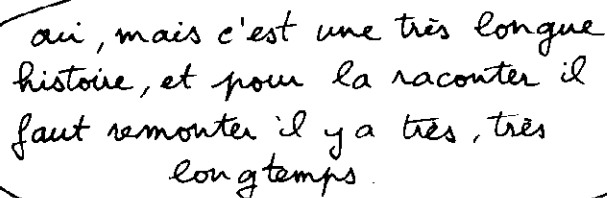 oui, mais c'est une très longue
histoire, et pour la raconter il
faut remonter il y a très, très
longtemps.